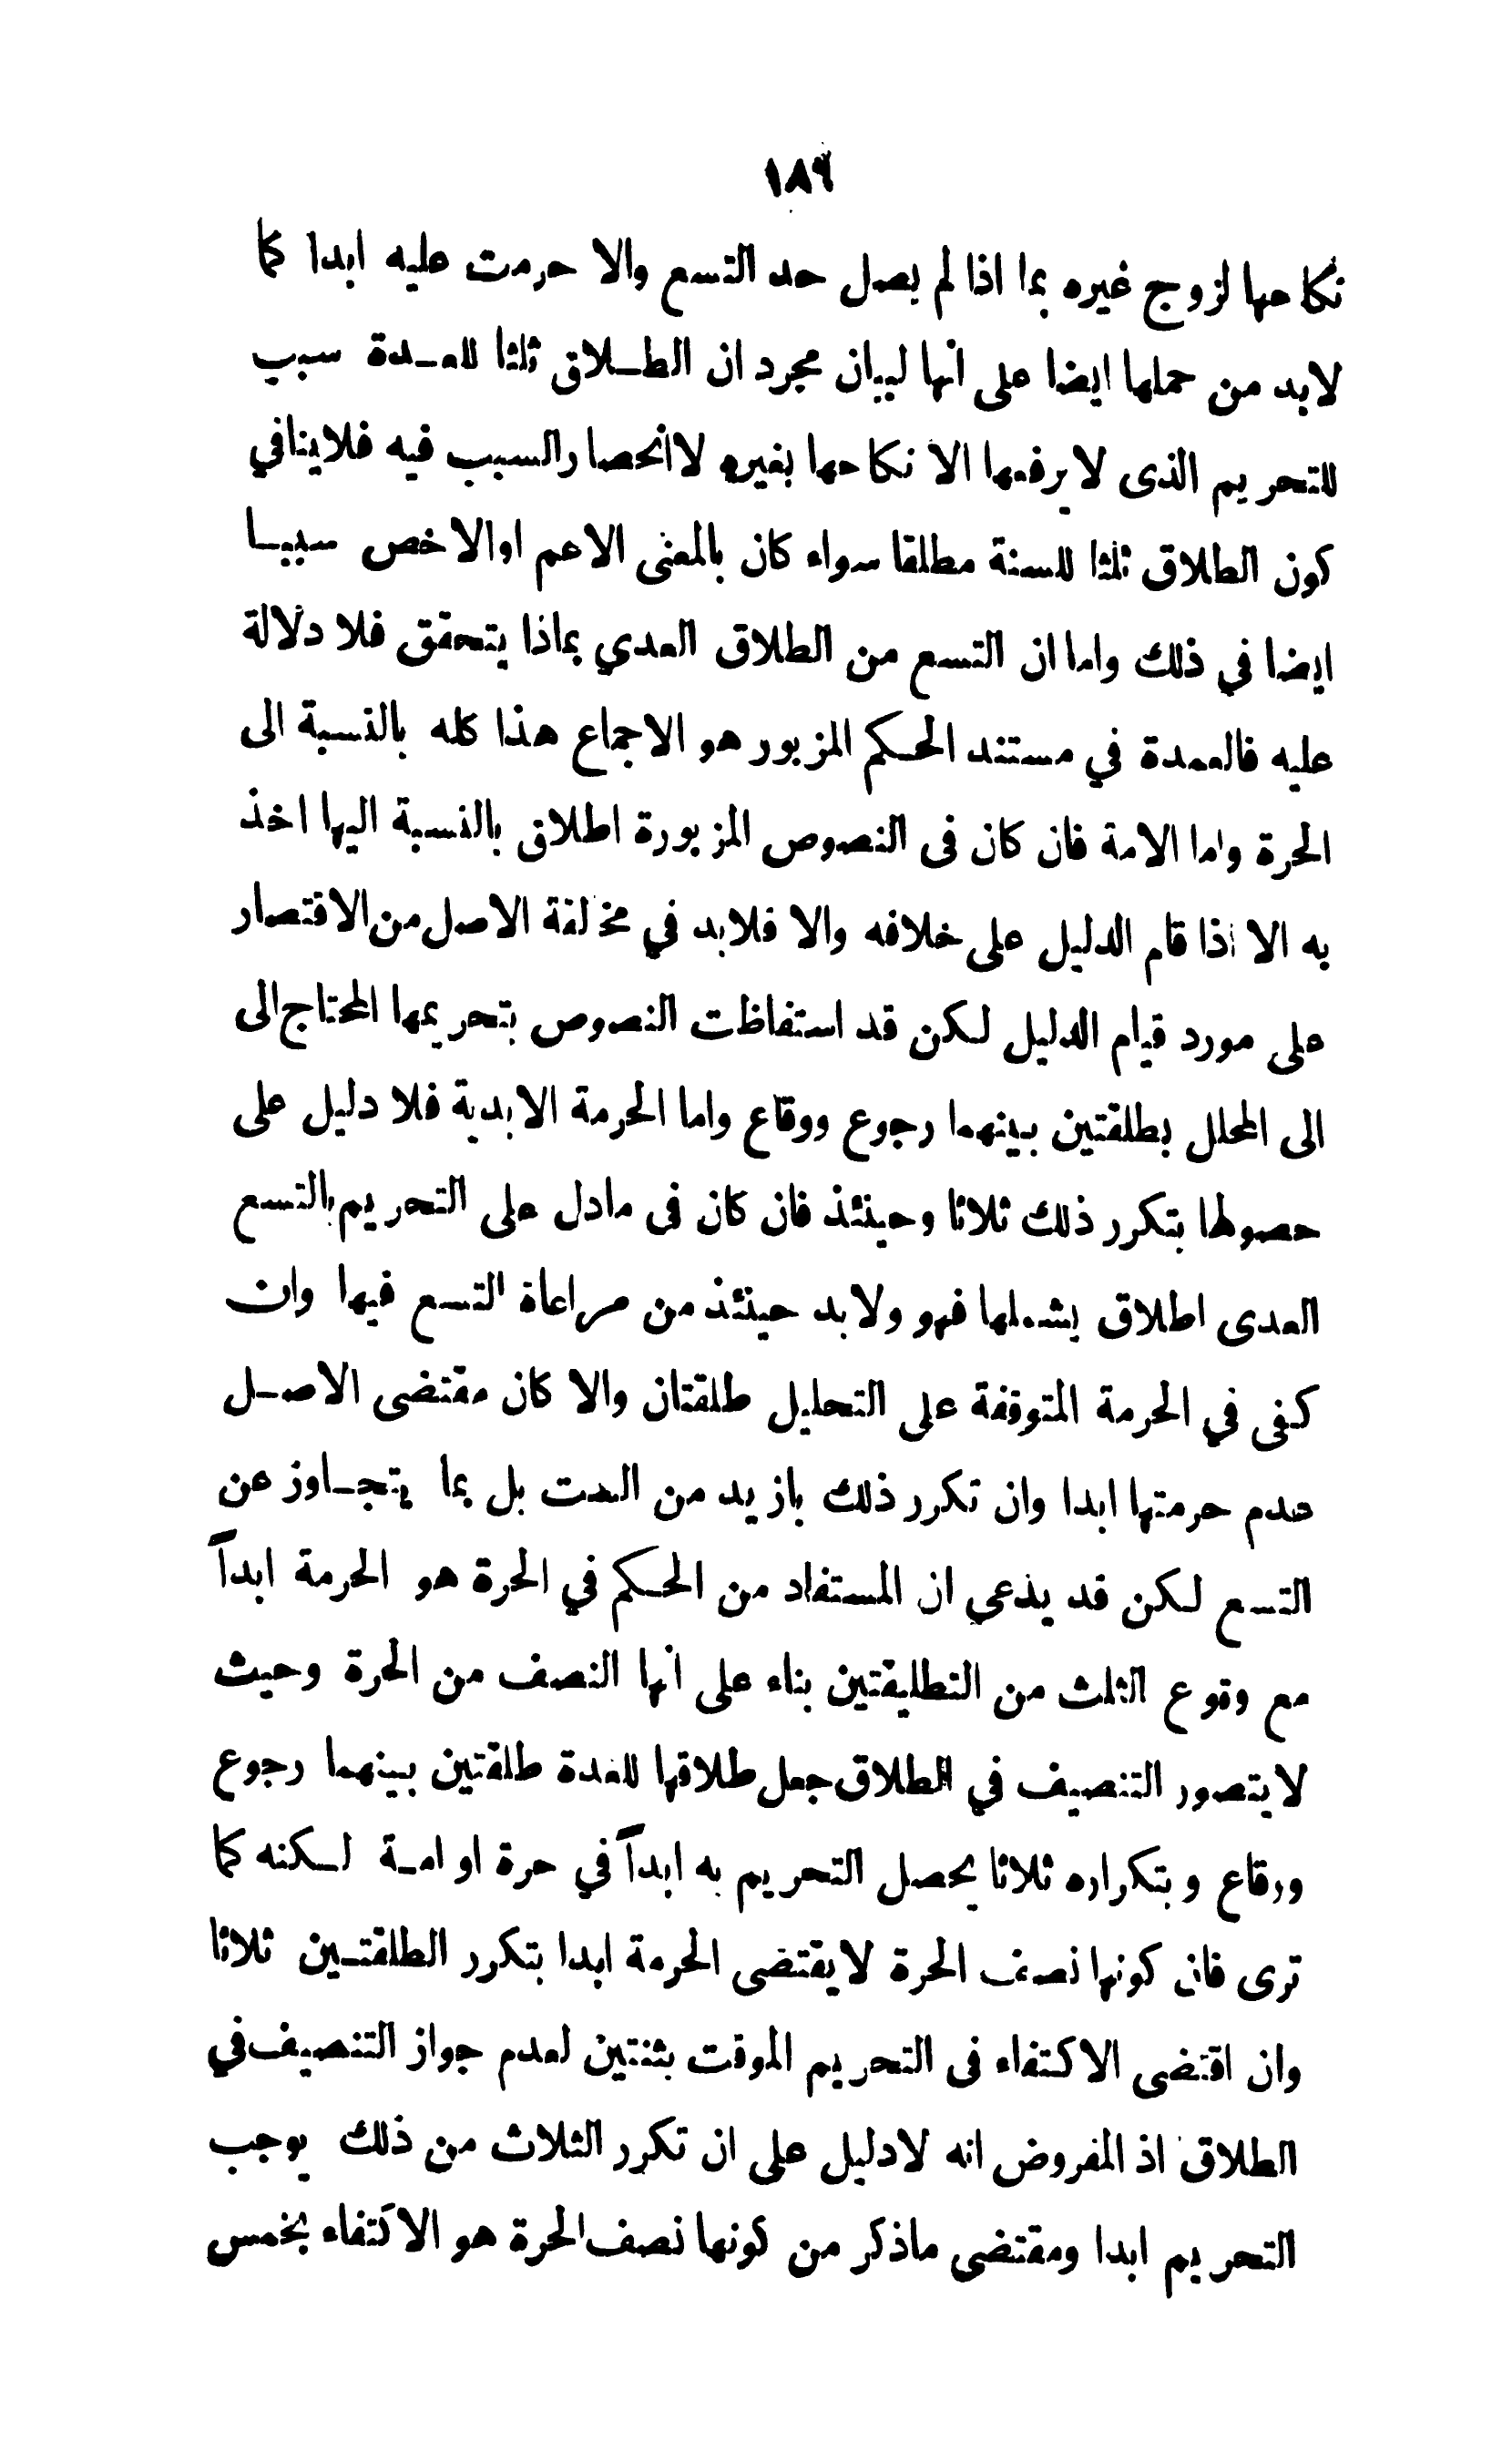 ١٨٩
نكاحها لزوج غيره بما اذا لم يصل حد التسع والا حرمت عليه ابدا كما
لابد من حملها ايضا على انها لبيان مجرد ان الطـلاق ثلثا للعـدة سبب
للتحريم الذى لا يرفعها الا نكاحها بغيره لاانحصار السبب فيه فلاينافي
كون الطلاق ثلثا للسنة مطلقا سواء كان بالمعنى الاعم اوالاخص سببـا
ايضا في ذلك واما ان التسع من الطلاق العدي بماذا يتحقق فلا دلالة
عليه فالعمدة في مستند الحكم المزبور هو الاجماع هذا كله بالنسبة الى
الحرة واما الامة فان كان فى النصوص المزبورة اطلاق بالنسبة اليها اخذ
به الا اذا قام الدليل على خلافه والا فلابد في مخالفة الاصل من الاقتصار
على مورد قيام الدليل لكن قد استفاظت النصوص بتحريمها المحتاج الى
الى المحلل بطلقتين بينهما رجوع ووقاع واما الحرمة الابدية فلا دليل على
حصولها بتكرر ذلك ثلاثا وحينئذ فان كان فى مادل على التحريم بالتسع
العدى اطلاق يشملها فهو ولابد حينئذ من مراعاة التسع فيها وان
كفى في الحرمة المتوقفة على التحليل طلقتان والا كان مقتضى الاصـل
عدم حرمتها ابدا وان تكرر ذلك بازيد من الست بل بما يتجـاوز عن
التسع لكن قد يدعي ان المستفاد من الحكم في الحرة هو الحرمة ابداً
مع وقوع الثلث من التطليقتين بناء على انها النصف من الحرة وحيث
لايتصور التنصيف في الطلاق جعل طلاقها للعدة طلقتين بينهما رجوع
ورقاع وبتكراره ثلاثا يحصل التحريم به ابداً في حرة او امـة لـكنه كما
ترى فان كونها نصف الحرة لايقتضى الحرمة ابدا بتكرر الطلقتـين ثلاثا
وان اقتضى الاكتفاء فى التحريم الموقت بثنتين لعدم جواز التنصيف في
الطلاق اذ المفروض انه لادليل على ان تكرر الثلاث من ذلك يوجب
التحريم ابدا ومقتضى ماذكر من كونها نصف الحرة هو الاكتفاء بخمس